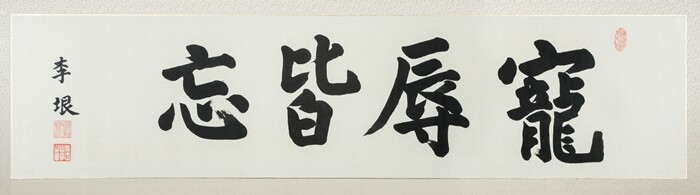 寵辱皆忘
李垠